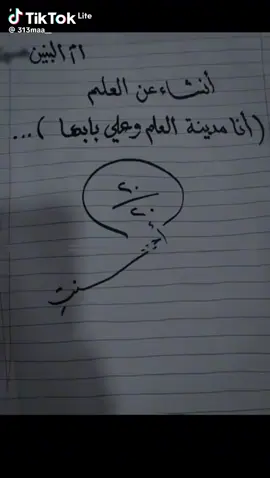 TikTok Lite
@313maa__
أم البنين
أنشاء عن العلم
(أنا مدينة العلم وعلي بابها) ...
٢٠
٢٠
أحسنتِ